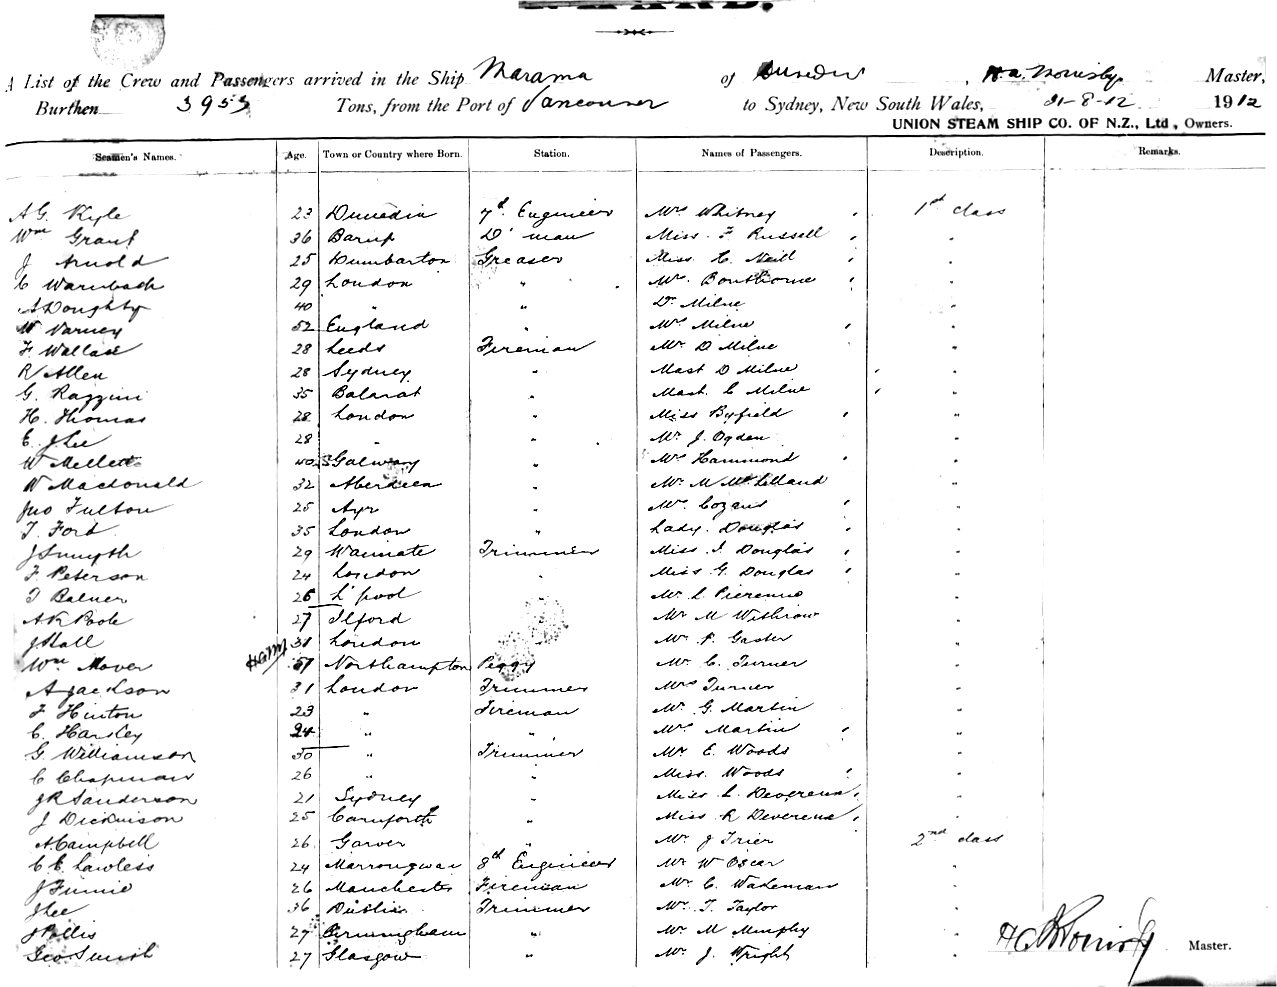 A List of the Crew and Passengers arrived in the Ship Marama of Dunedin, H.A. Morrisby Master,
Burthen 3953 Tons, from the Port of Vancouver to Sydney, New South Wales, 21-8-12 1912
UNION STEAM SHIP CO. OF N.Z., Ltd, Owners.
Seamen's Names. Age. Town or Country where Born. Station. Names of Passengers. Description. Remarks.
A G. Kyle 23 Dunedin 7th Engineer Mrs Whitney 1st class
Wm Grant 36 D'man Miss F Russell "
J Arnold 25 Dumbarton Greaser Miss H. Neill "
C Warnback 29 London " Mrs "
A Doughty 40 " " Dr Milne "
W Varney 52 England " Mrs Milne "
F Wallace 28 Leeds Fireman Mr D Milne "
R Allen 28 Sydney " Mast D Milne "
G. Razzini 35 Balarat " Mast. C Milne "
H. Thomas 28 London " Miss Byfield "
E. J Lee 28 " " Mr J. Ogden "
W Mellett 40 Galway " Mrs Hammond "
W Macdonald 32 Aberdeen " Mr M McLelland "
Jno Fulton 25 Ayr " Mrs Cozens "
T. Ford 35 London " Lady Douglas "
J Smyth 29 Waimate Trimmer Miss I. Douglas "
F Peterson 24 London " Miss G. Douglas "
T Balner 26 L'pool Mr L "
A K Poole 27 Ilford Mr M Withrow "
J Hall 31 London Mr F. Gaster "
Wm Mover 51 Northampton Peggy Mr C. Turner "
A Jackson 31 London Trimmer Mrs Turner "
F Hinton 23 " Fireman Mr G. Martin "
C. Harsley 24 " " Mrs Martin "
G. Williamson 30 " Trimmer Mr E. Woods "
C Chapman 26 " " Miss. Woods "
J R Sanderson 21 Sydney " Miss L. Devereux "
J Dickinson 25 Carnforth " Miss R Devereux "
A Campbell 26 " Mr J Trier 2nd class
C E Lawless 24 8th Engineer Mr W Oscar "
J Finnie 26 Manchester Fireman Mr C. Wakeman "
J Lee 36 Dublin Trimmer Mr T. Taylor "
J Pollis 27 Birmingham " Mr M Murphy "
Geo Smith 27 Glasgow " Mr J. Wright "
H A Morrisby Master.